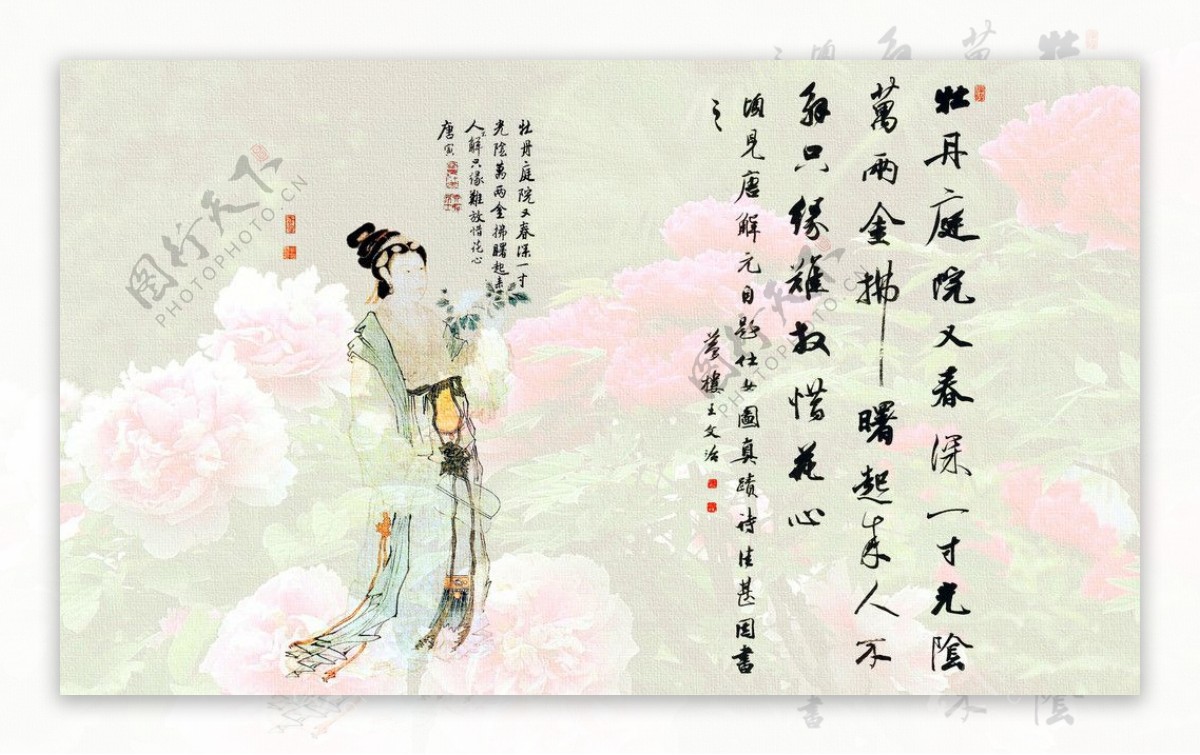 牡丹庭院又春深一寸光陰
萬兩金拂曙起來人不
解只緣難放惜花心
頃見唐解元自題仕女圖真蹟詩佳甚因書
之
夢樓王文治
牡丹庭院又春深一寸
光陰萬兩金拂曙起來
人解只緣難放惜花心
唐寅
图行天下
PHOTOPHOTO.CN